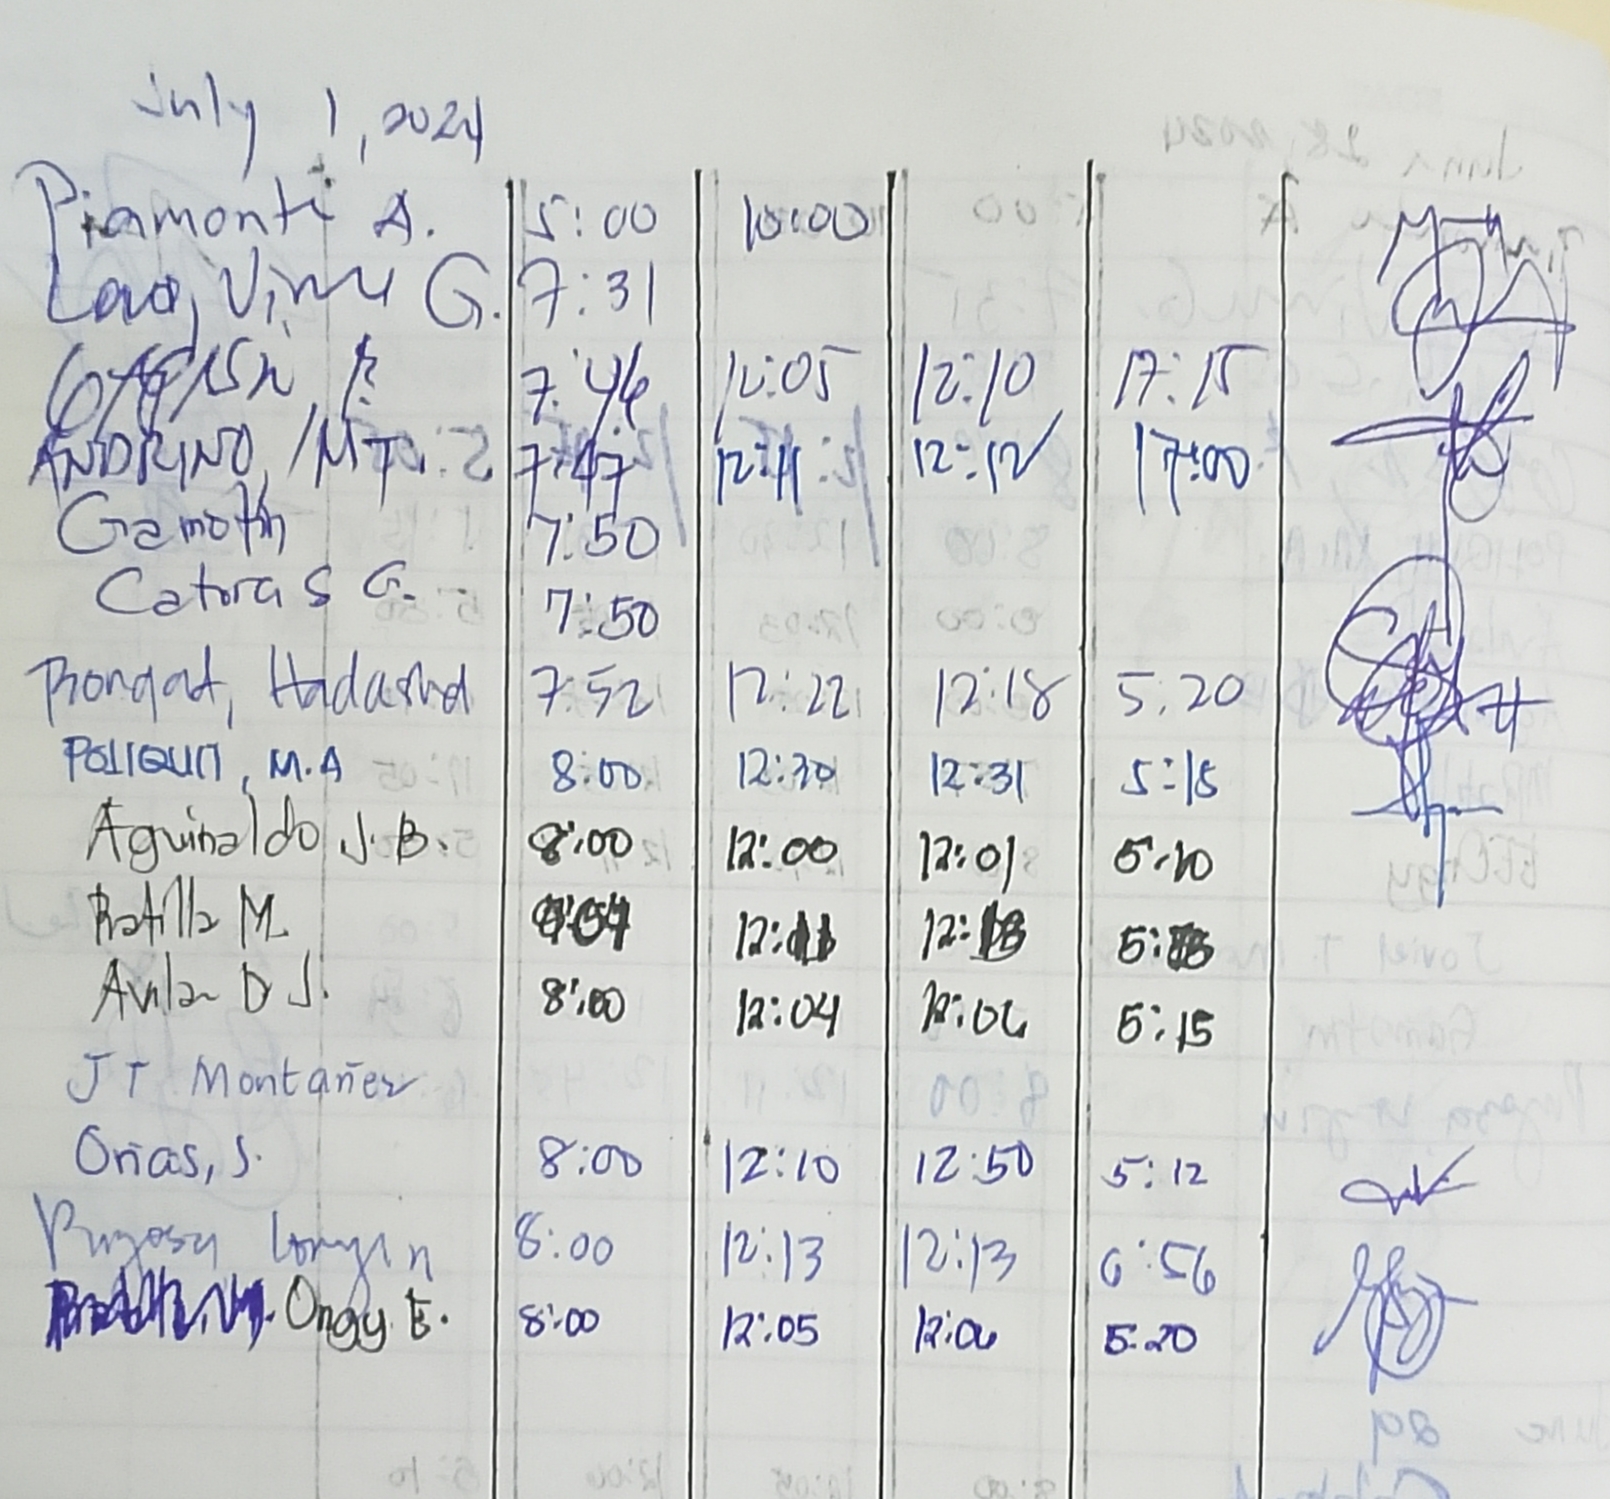 July 1, 2024
Piamonte A. 5:00 10:00
Lao, Vinu G. 7:31
7:46 12:05 12:10 17:15
ANDRINO, MT. 7:47 12:11 12:12 17:00
Gamotin 7:50
Catoras G. 7:50
Bongat, Hadassha 7:52 12:22 12:18 5:20
POLIQUIT, M.A 8:00 12:30 12:31 5:15
Aguinaldo J.B. 8:00 12:00 12:01 5:10
Batilla M. 12: 12:13 5:
Avila D J. 8:00 12:04 12:06 5:15
JT Montañez
Orias, S. 8:00 12:10 12:50 5:12
8:00 12:13 12:13 6:56
Ongy E. 8:00 12:05 12:06 5:20